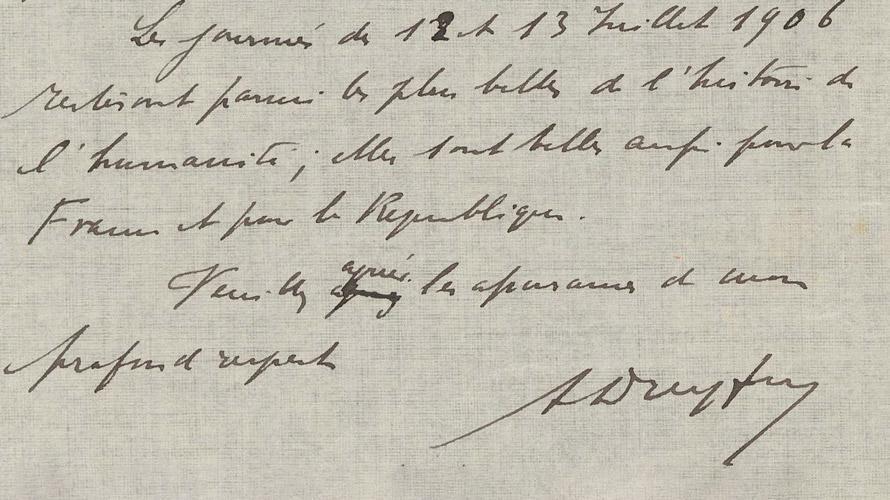 Les journées des 12 et 13 Juillet 1906
resteront parmi les plus belles de l'histoire de
l'humanité; elles sont belles aussi pour la
France et pour la République.
Veuillez agréer les assurances de mon
profond respect
A Dreyfus